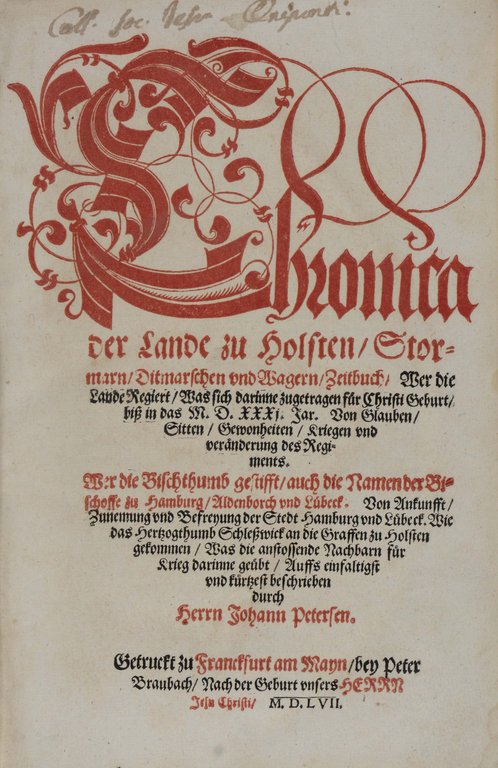 Coll. Soc. Jesu
Chronica
der Lande zu Holsten/ Stor-
marn/ Ditmarschen vnd Wagern/ Zeitbuch/ Wer die
Lande Regiert/ Was sich darinne zugetragen für Christi Geburt/
biß in das M. D. XXXj. Jar. Von Glauben/
Sitten/ Gewonheiten/ Kriegen vnd
veränderung des Regi-
ments.
Wer die Bischthumb gestifft/ auch die Namen der Bi-
schoffe zu Hamburg/ Aldenborch vnd Lübeck. Von Ankunfft/
Zunemung vnd Befreyung der Stedt Hamburg vnd Lübeck. Wie
das Hertzogthumb Schleßwick an die Graffen zu Holsten
gekommen/ Was die anstossende Nachbarn für
Krieg darinne geübt/ Auffs einfaltigst
vnd kürtzest beschrieben
durch
Herrn Johann Petersen.
Getruckt zu Franckfurt am Mayn/ bey Peter
Braubach/ Nach der Geburt vnsers HERRN
Jesu Christi/ M. D. LVII.